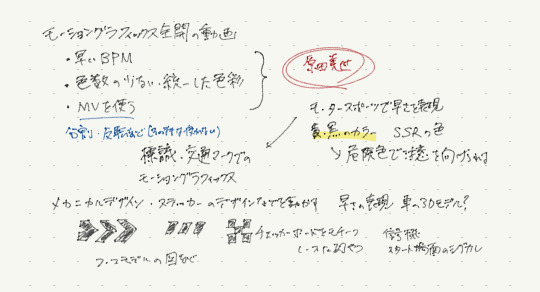 モーショングラフィックス全開の動画
・早いBPM
・色数の少ない統一した色彩
・MVを使う
モータースポーツで早さを表現
黄・黒のカラー SSRの色
↘危険色で注意を向けれる
標識・交通マークでの
モーショングラフィックス
メカニカルデザイン・ステッカーのデザインなどを動かす 早さの表現 車の3Dモデル?
チェッカーボードをモチーフ
レースな的やつ
信号機
スタート場面のシグナル
プラモデルの図など